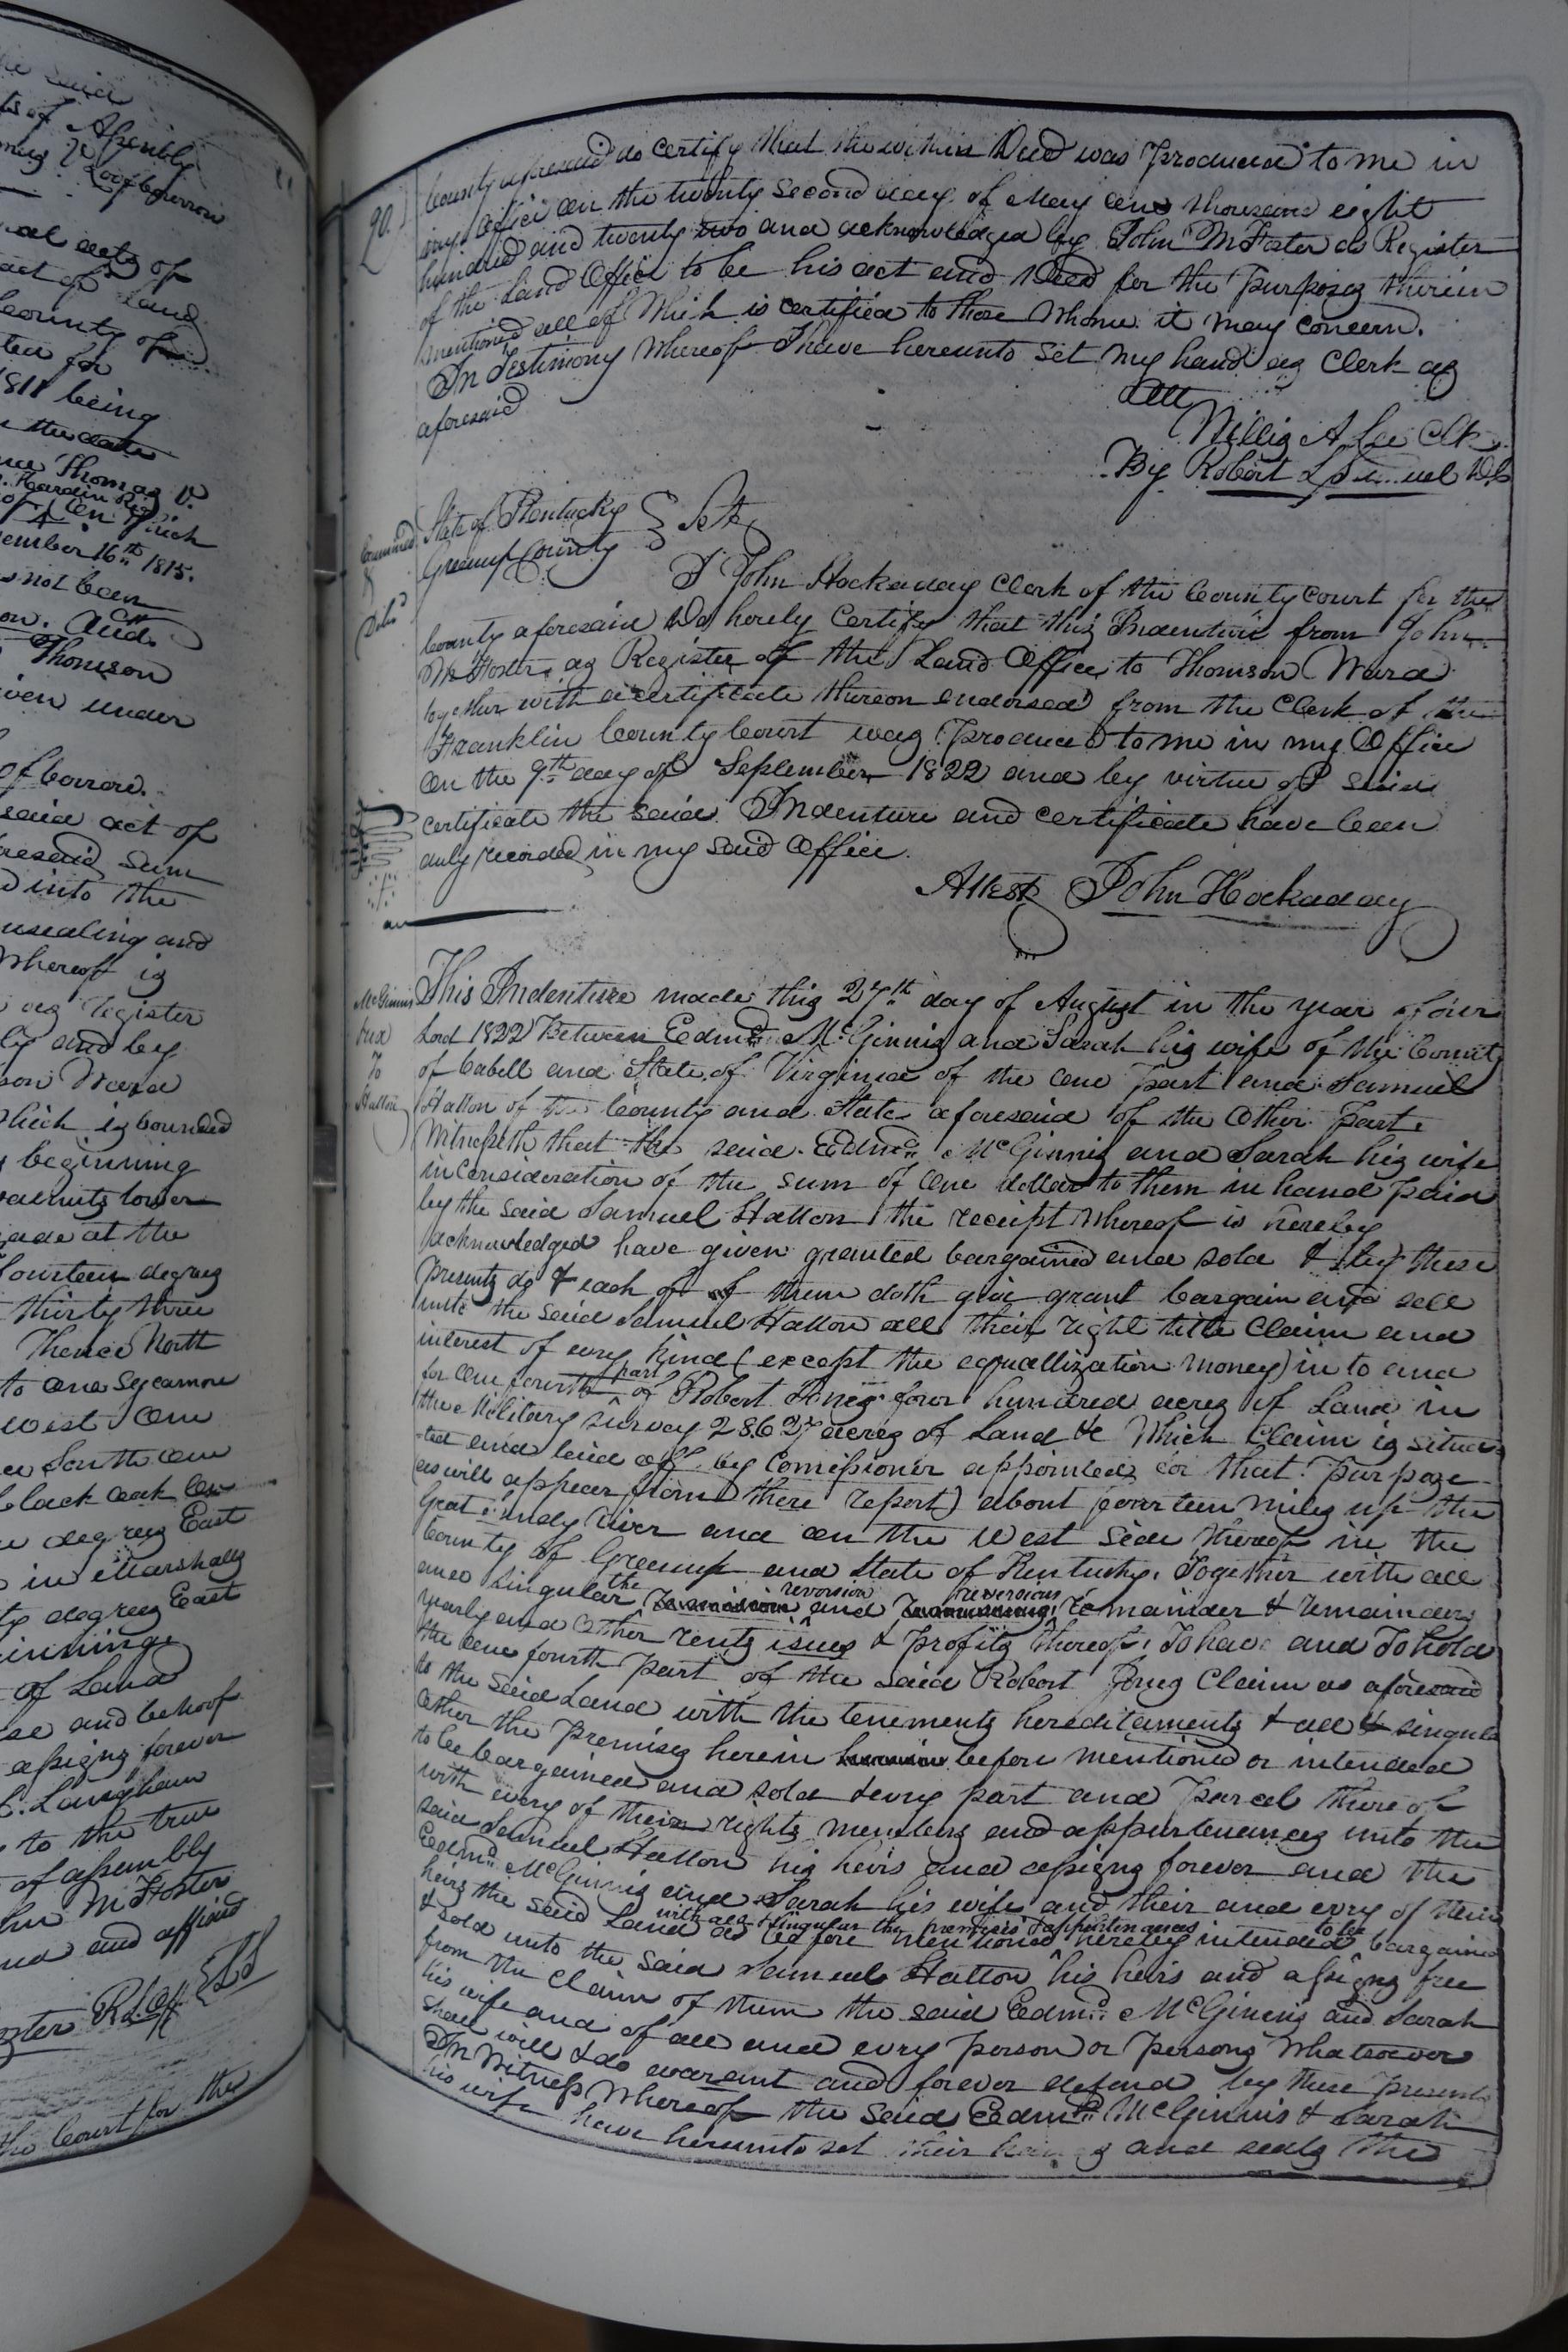 he said
ts of Assembly
al acts of
act of Land
County of
ted for
1811 being
the date
Thomas V.
Hardin Reg
of on which
ember 16th 1815.
s not been
on. And.
Thomson
iven under
of borrow.
said act of
resaid sum
d into the
nsealing and
Whereof is
as Register
ly and by
son Ward
which is bounded
beginning
walnuts lower
made at the
fourteen degrees
thirty three
Thence North
to one Sycamore
west one
South one
black oak
degrees East
in Marshalls
ty degrees East
inning
of Land
se and behoof
assigns forever
C. Langham
to the true
of assembly
hn M Foster
and and affixed
the Court for the
90.
County aforesaid do certify that the within Deed was produced to me in
my office on the twenty second day of May one thousand eight
hundred and twenty two and acknowledged by John M Foster as Register
of the Land Office to be his act and Deed for the purposes therein
mentioned all of Which is certified to those Whome it may concern.
In Testimony Whereof I have hereunto set my hand as Clerk as
aforesaid
Att
Willis A Lee Clk.
By Robert
State of Kentucky } Sct
Greenup County
Examined
&
Deld
I John Hockaday Clerk of the County court for the
County aforesaid Do hereby Certify that this Indenture from John
M Foster as Register of the Land Office to Thomson Ward
together with a certificate thereon endorsed from the Clerk of the
Franklin County Court was Produced to me in my Office
On the 9th day of September 1822 and by virtue of said
certificate the said Indenture and certificate have been
duly recorded in my said Office.
Attest John Hockaday
McGinnis
And
To
Hatton
This Indenture made this 27th day of August in the year of our
Lord 1822 Between Edmd. McGinnis and Sarah his wife of the County
of Cabell and State of Virginia of the one part and Samuel
Hatton of the County and State aforesaid of the Other Part
Witnesseth that the said Edmd. McGinnis and Sarah his wife
in Consideration of the sum of one dollar to them in hand paid
by the said Samuel Hatton the receipt Whereof is hereby
acknowledged have given granted bargained and sold & by these
presents do & each of of them doth give grant bargain and sell
unto the said Samuel Hatton all their right title Claim and
interest of every kind (except the equallization money) in to and
for one fourth part of Robert Jones four hundred acres of Land in
the Military survey 28627 acres of Land &c Which Claim is situa
-ted and laid off by Comissioner appointed for that purpose
as will appear from there report) about fourteen miles up the
Great Sandy River and on the West side thereof in the
County of Greenup and State of Kentucky. Together with all
and singular the reversion and reversions remainder & remainders
yearly and Other rents issues & profits thereof. To have and To hold
the one fourth part of the said Robert Jones Claim as aforesaid
to the said Land with the tenements hereditaments & all & singula
Other the Premises herein before mentioned or intended
to be bargained and sold & every part and Parcel thereof
with every of their rights members and appurtenances unto the
said Samuel Hatton his heirs and assigns forever and the
Edmd. McGinnis and Sarah his wife and their and every of their
heirs the said Land as with all & singular the premises & appurtenances before mentioned hereby intended to be bargained
& sold unto the said Samuel Hatton his heirs and assigns free
from the Claim of them the said Edmd. McGinnis and Sarah
his wife and of all and every person or Persons Whatsoever
shall will & do warant and forever defend by these presents
In Witness Whereof the said Edmd. McGinnis & Sarah
his wife have hereunto set their and seals the